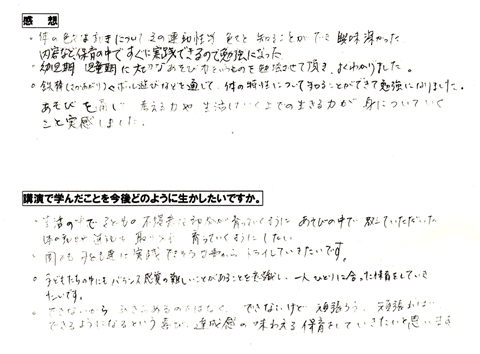 感想
・体の色々な動きについてその運動性など色々と知ることができて興味深かった
内容など保育の中ですぐに実践できるので勉強になった
・幼児期 児童期に大切なあそび方というものを勉強させて頂き、よくわかりました。
・鉄棒(さかあがり)やボール遊びなどを通して、体の特性について知ることができて勉強になりました。
あそびを通し 考える力や 生活していく上での生きる力が身についていく
こと実感しました。
講演で学んだことを今後どのように生かしたいですか。
・生活の中で子どもの 育っていくように あそびの中で 教えていただいた
育っていくようにしたい
子ども達に実践できそうな トライしていきたいです。
・子どもたちの中にもバランス感覚の難しいことがあることを意識し、一人ひとりに合った保育をしていき
たいです。
・できないから あきらめるのではなく、できないけど 頑張ろう、頑張れば
できるようになるという喜び、達成感の味わえる保育をしていきたいと思います